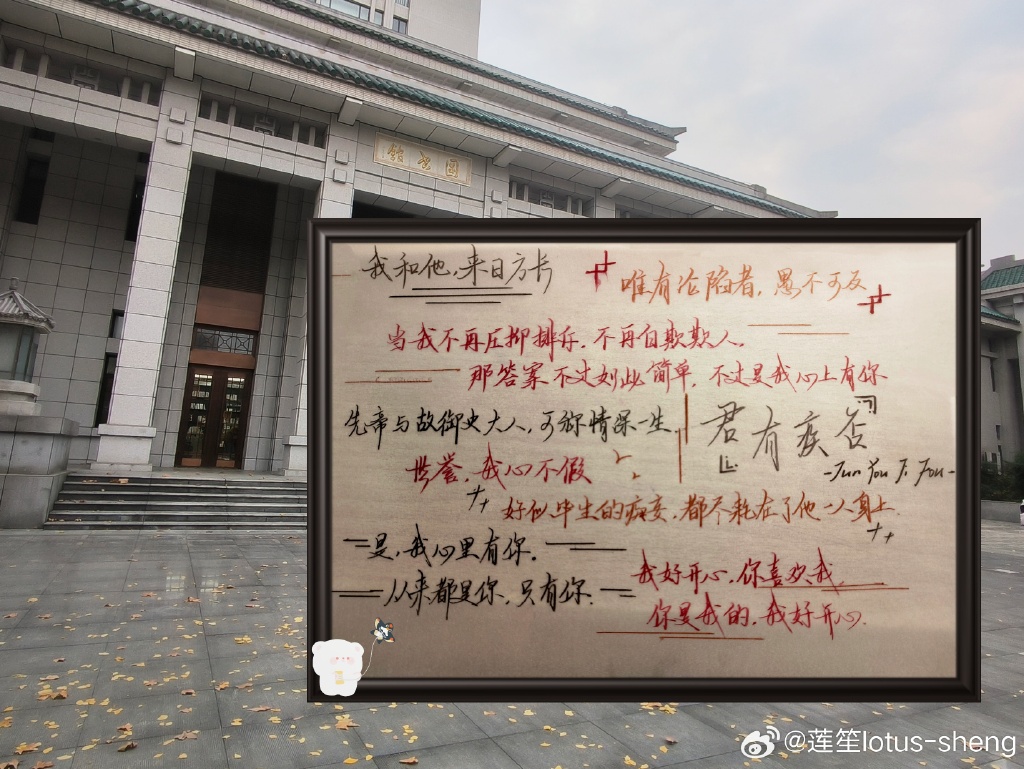 圖書館
我和他,来日方长
唯有沦陷者,愚不可及
当我不再压抑排斥,不再自欺欺人。
那答案不过如此简单,不过是我心上有你
先帝与故御史大人,可称情深一生
君有疾否
-Jun You Ji Fou-
世誉,我心不假
好似毕生的,都尽耗在了他一人身上.
是,我心里有你.
从来都是你,只有你.
我好开心,你喜欢我,
你是我的,我好开心.
@莲笙lotus-sheng